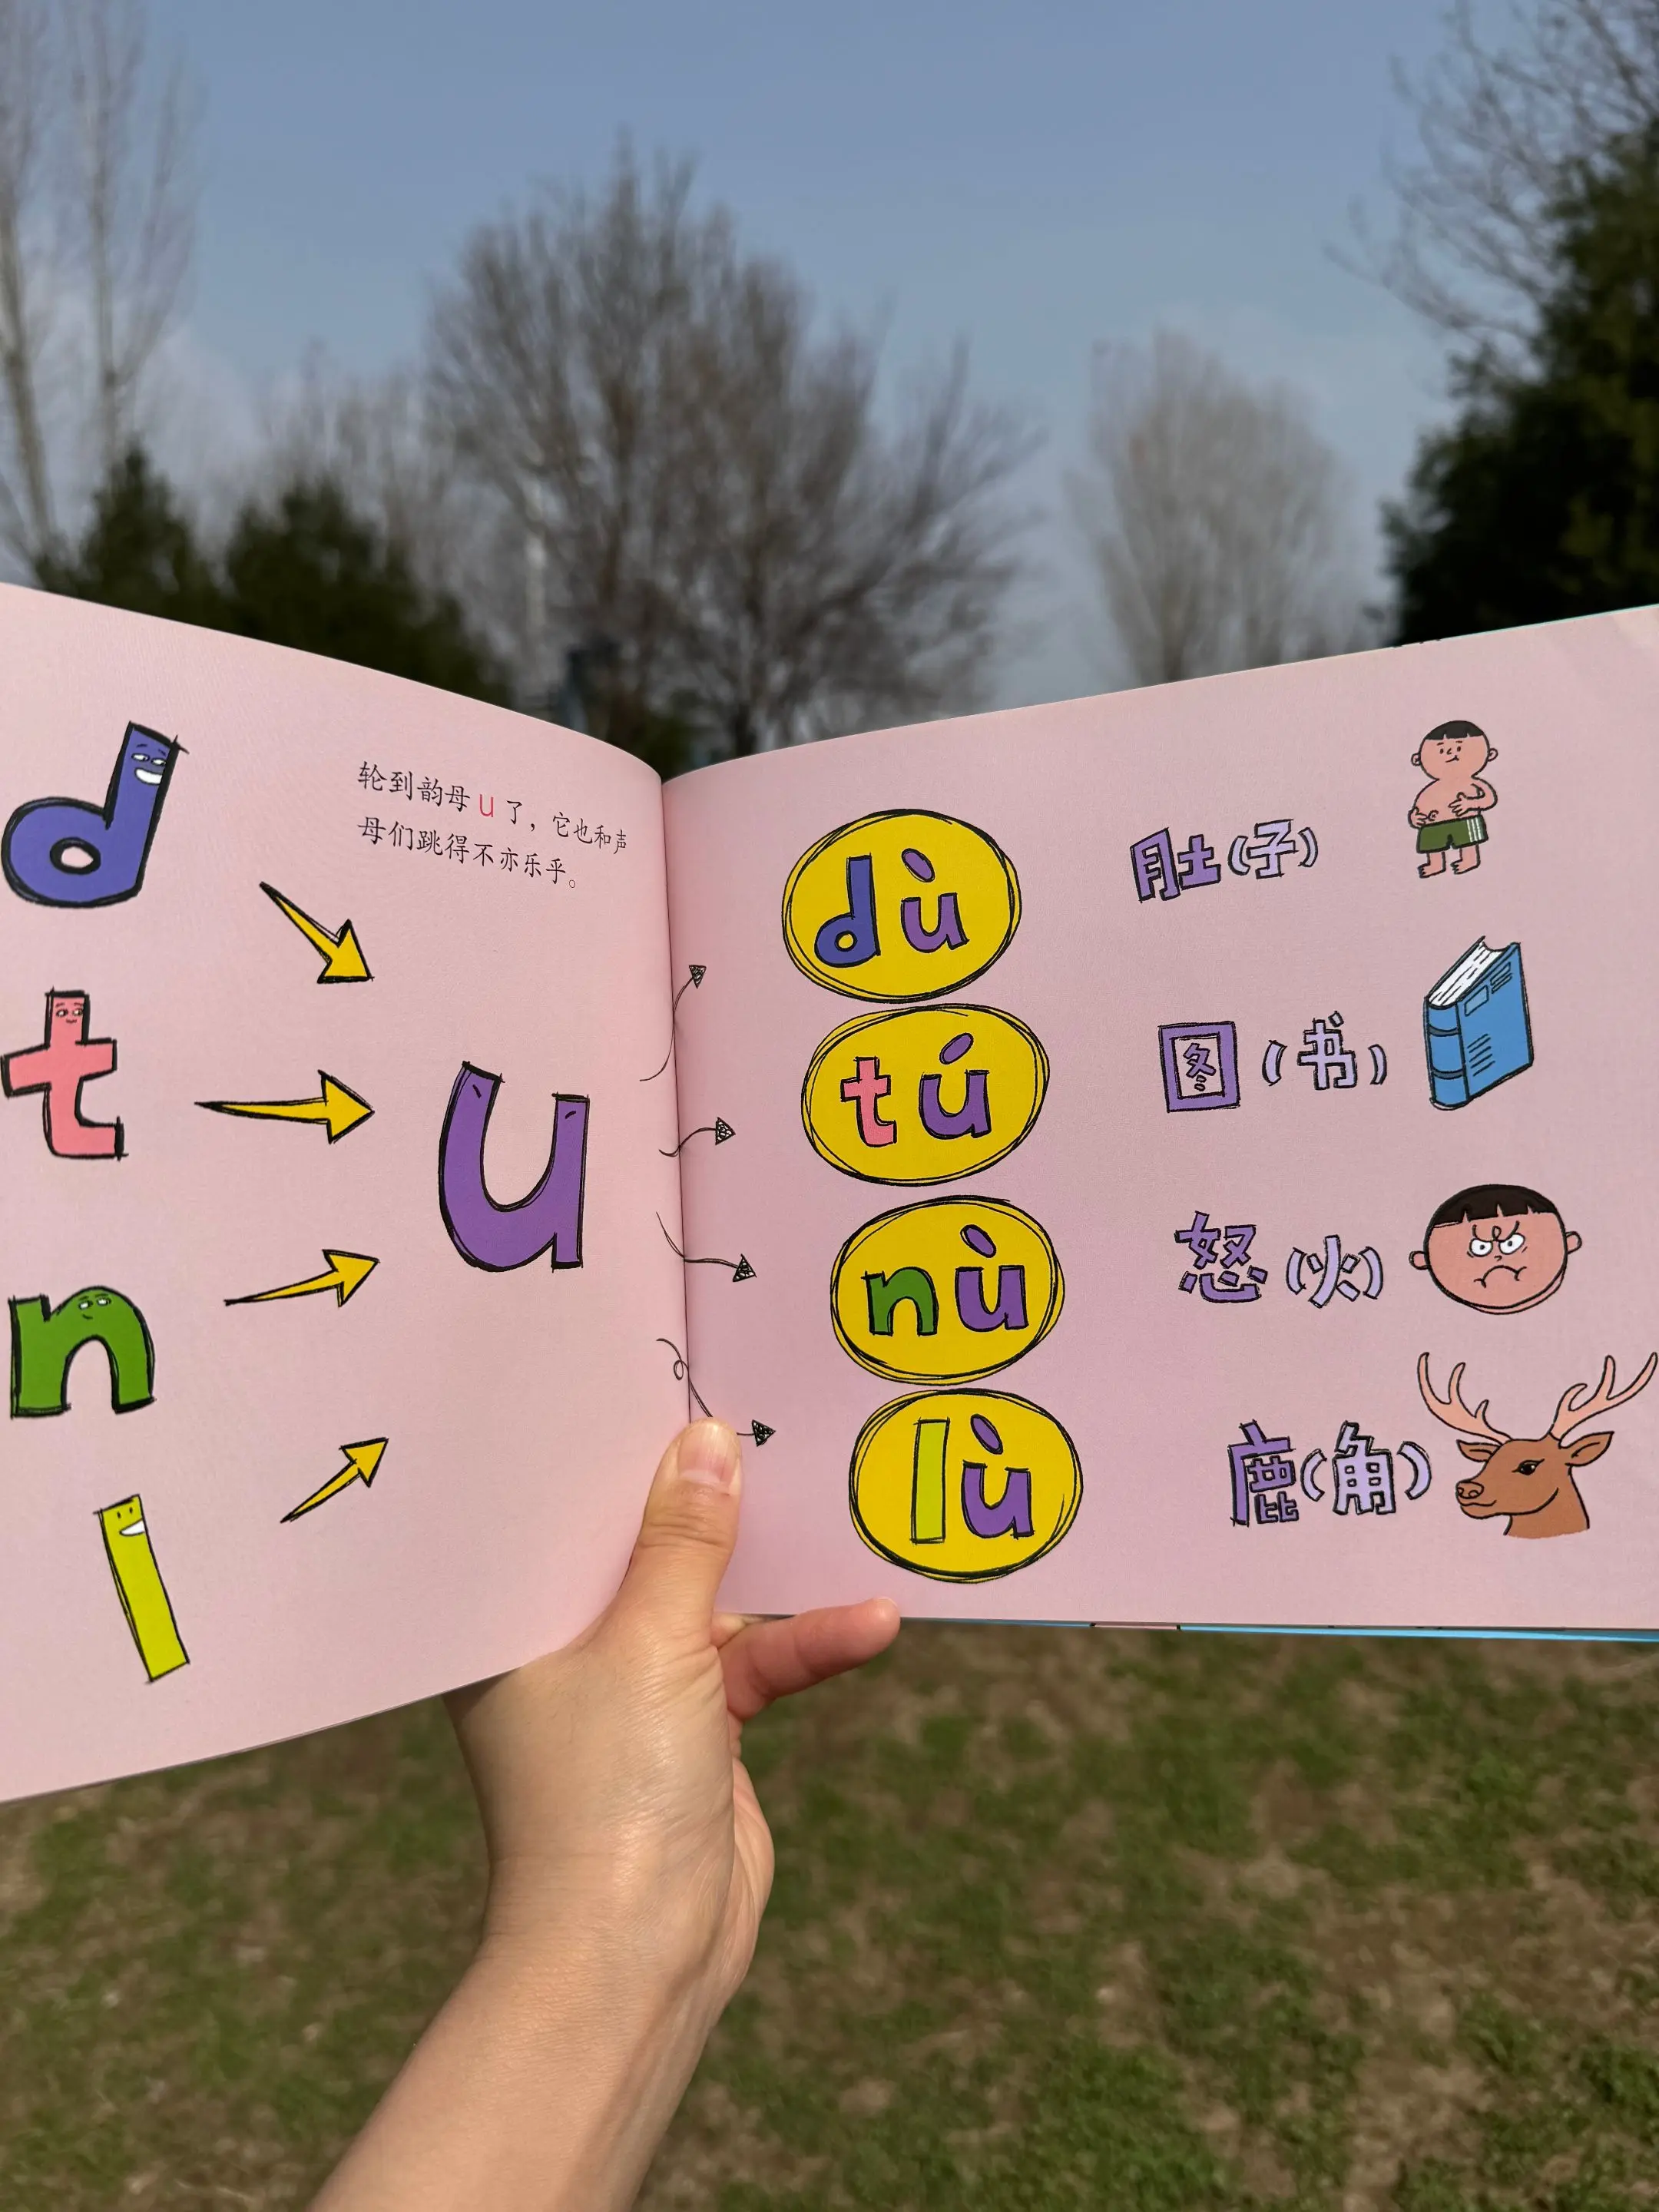 d
t
n
l
轮到韵母u了，它也和声
母们跳得不亦乐乎。
u
dù
肚(子)
tú
图(书)
nù
怒(火)
lù
鹿(角)